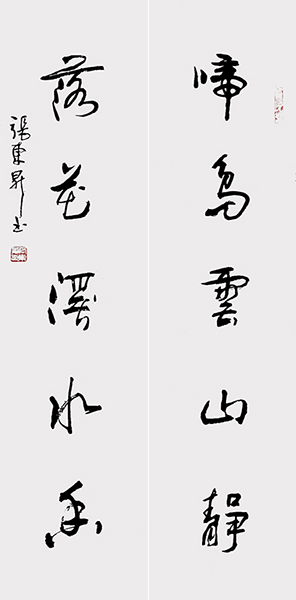 啼鳥雲山靜
落花溪水香
張東昇書